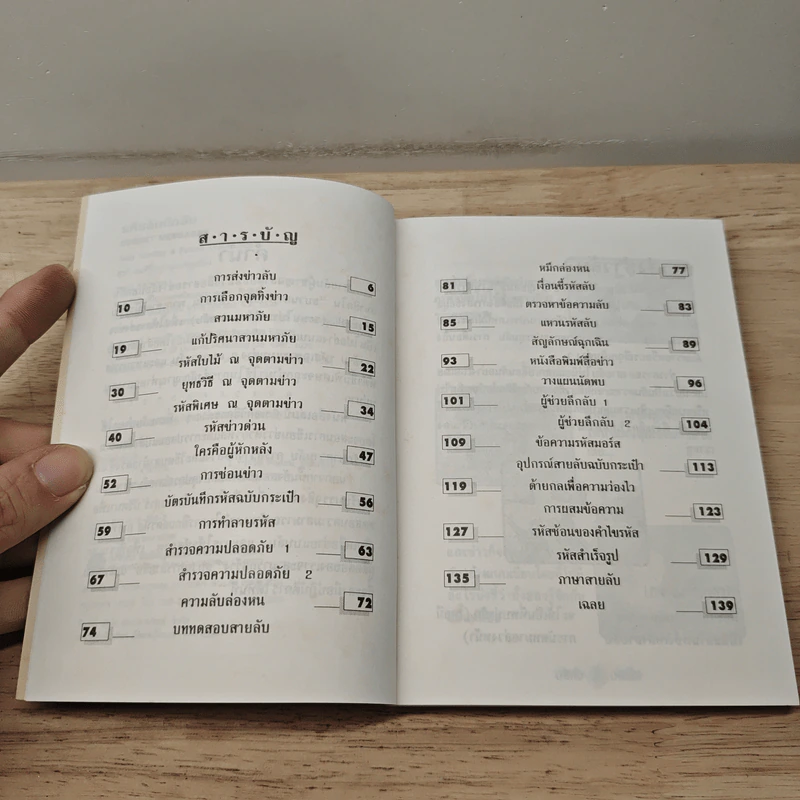 ส·า·ร·บั·ญ
การส่งข่าวลับ 6
10 การเลือกจุดทิ้งข่าว
สวนมหาภัย 15
19 แก้ปริศนาสวนมหาภัย
รหัสใบไม้ ณ จุดตามข่าว 22
30 ยุทธวิธี ณ จุดตามข่าว
รหัสพิเศษ ณ จุดตามข่าว 34
40 รหัสข่าวด่วน
ใครคือผู้หักหลัง 47
52 การซ่อนข่าว
บัตรบันทึกรหัสฉบับกระเป๋า 56
59 การทำลายรหัส
สำรวจความปลอดภัย 1 63
67 สำรวจความปลอดภัย 2
ความลับล่องหน 72
74 บททดสอบสายลับ
หมึกล่องหน 77
81 เงื่อนชี้รหัสลับ
ตรวจหาข้อความลับ 83
85 แหวนรหัสลับ
สัญลักษณ์ฉุกเฉิน 89
93 หนังสือพิมพ์สื่อข่าว
วางแผนนัดพบ 96
101 ผู้ช่วยลึกลับ 1
ผู้ช่วยลึกลับ 2 104
109 ข้อความรหัสมอร์ส
อุปกรณ์สายลับฉบับกระเป๋า 113
119 ด้ายกลเพื่อความว่องไว
การผสมข้อความ 123
127 รหัสซ้อนของคำไขรหัส
รหัสสำเร็จรูป 129
135 ภาษาสายลับ
เฉลย 139